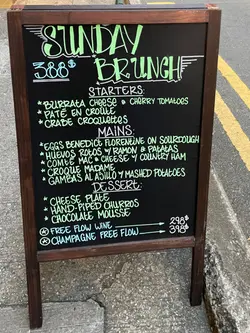 SUNDAY
388$ BRUNCH
STARTERS:
* BURRATA CHEESE & CHERRY TOMATOES
* PATÉ EN CROUTE
* CRABE CROQUETTES
MAINS:
* EGGS BENEDICT FLORENTINE ON SOURDOUGH
* HUEVOS ROTOS W/ RAMON & PATATAS
* COMTÉ MAC & CHEESE W/ COUNTRY HAM
* CROQUE MADAME
* GAMBAS AL AJILLO W/ MASHED POTATOES
DESSERT:
* CHEESE PLATE
* HAND-PIPED CHURROS
* CHOCOLATE MOUSSE
* FREE FLOW WINE 298$
* CHAMPAGNE FREE FLOW 398$